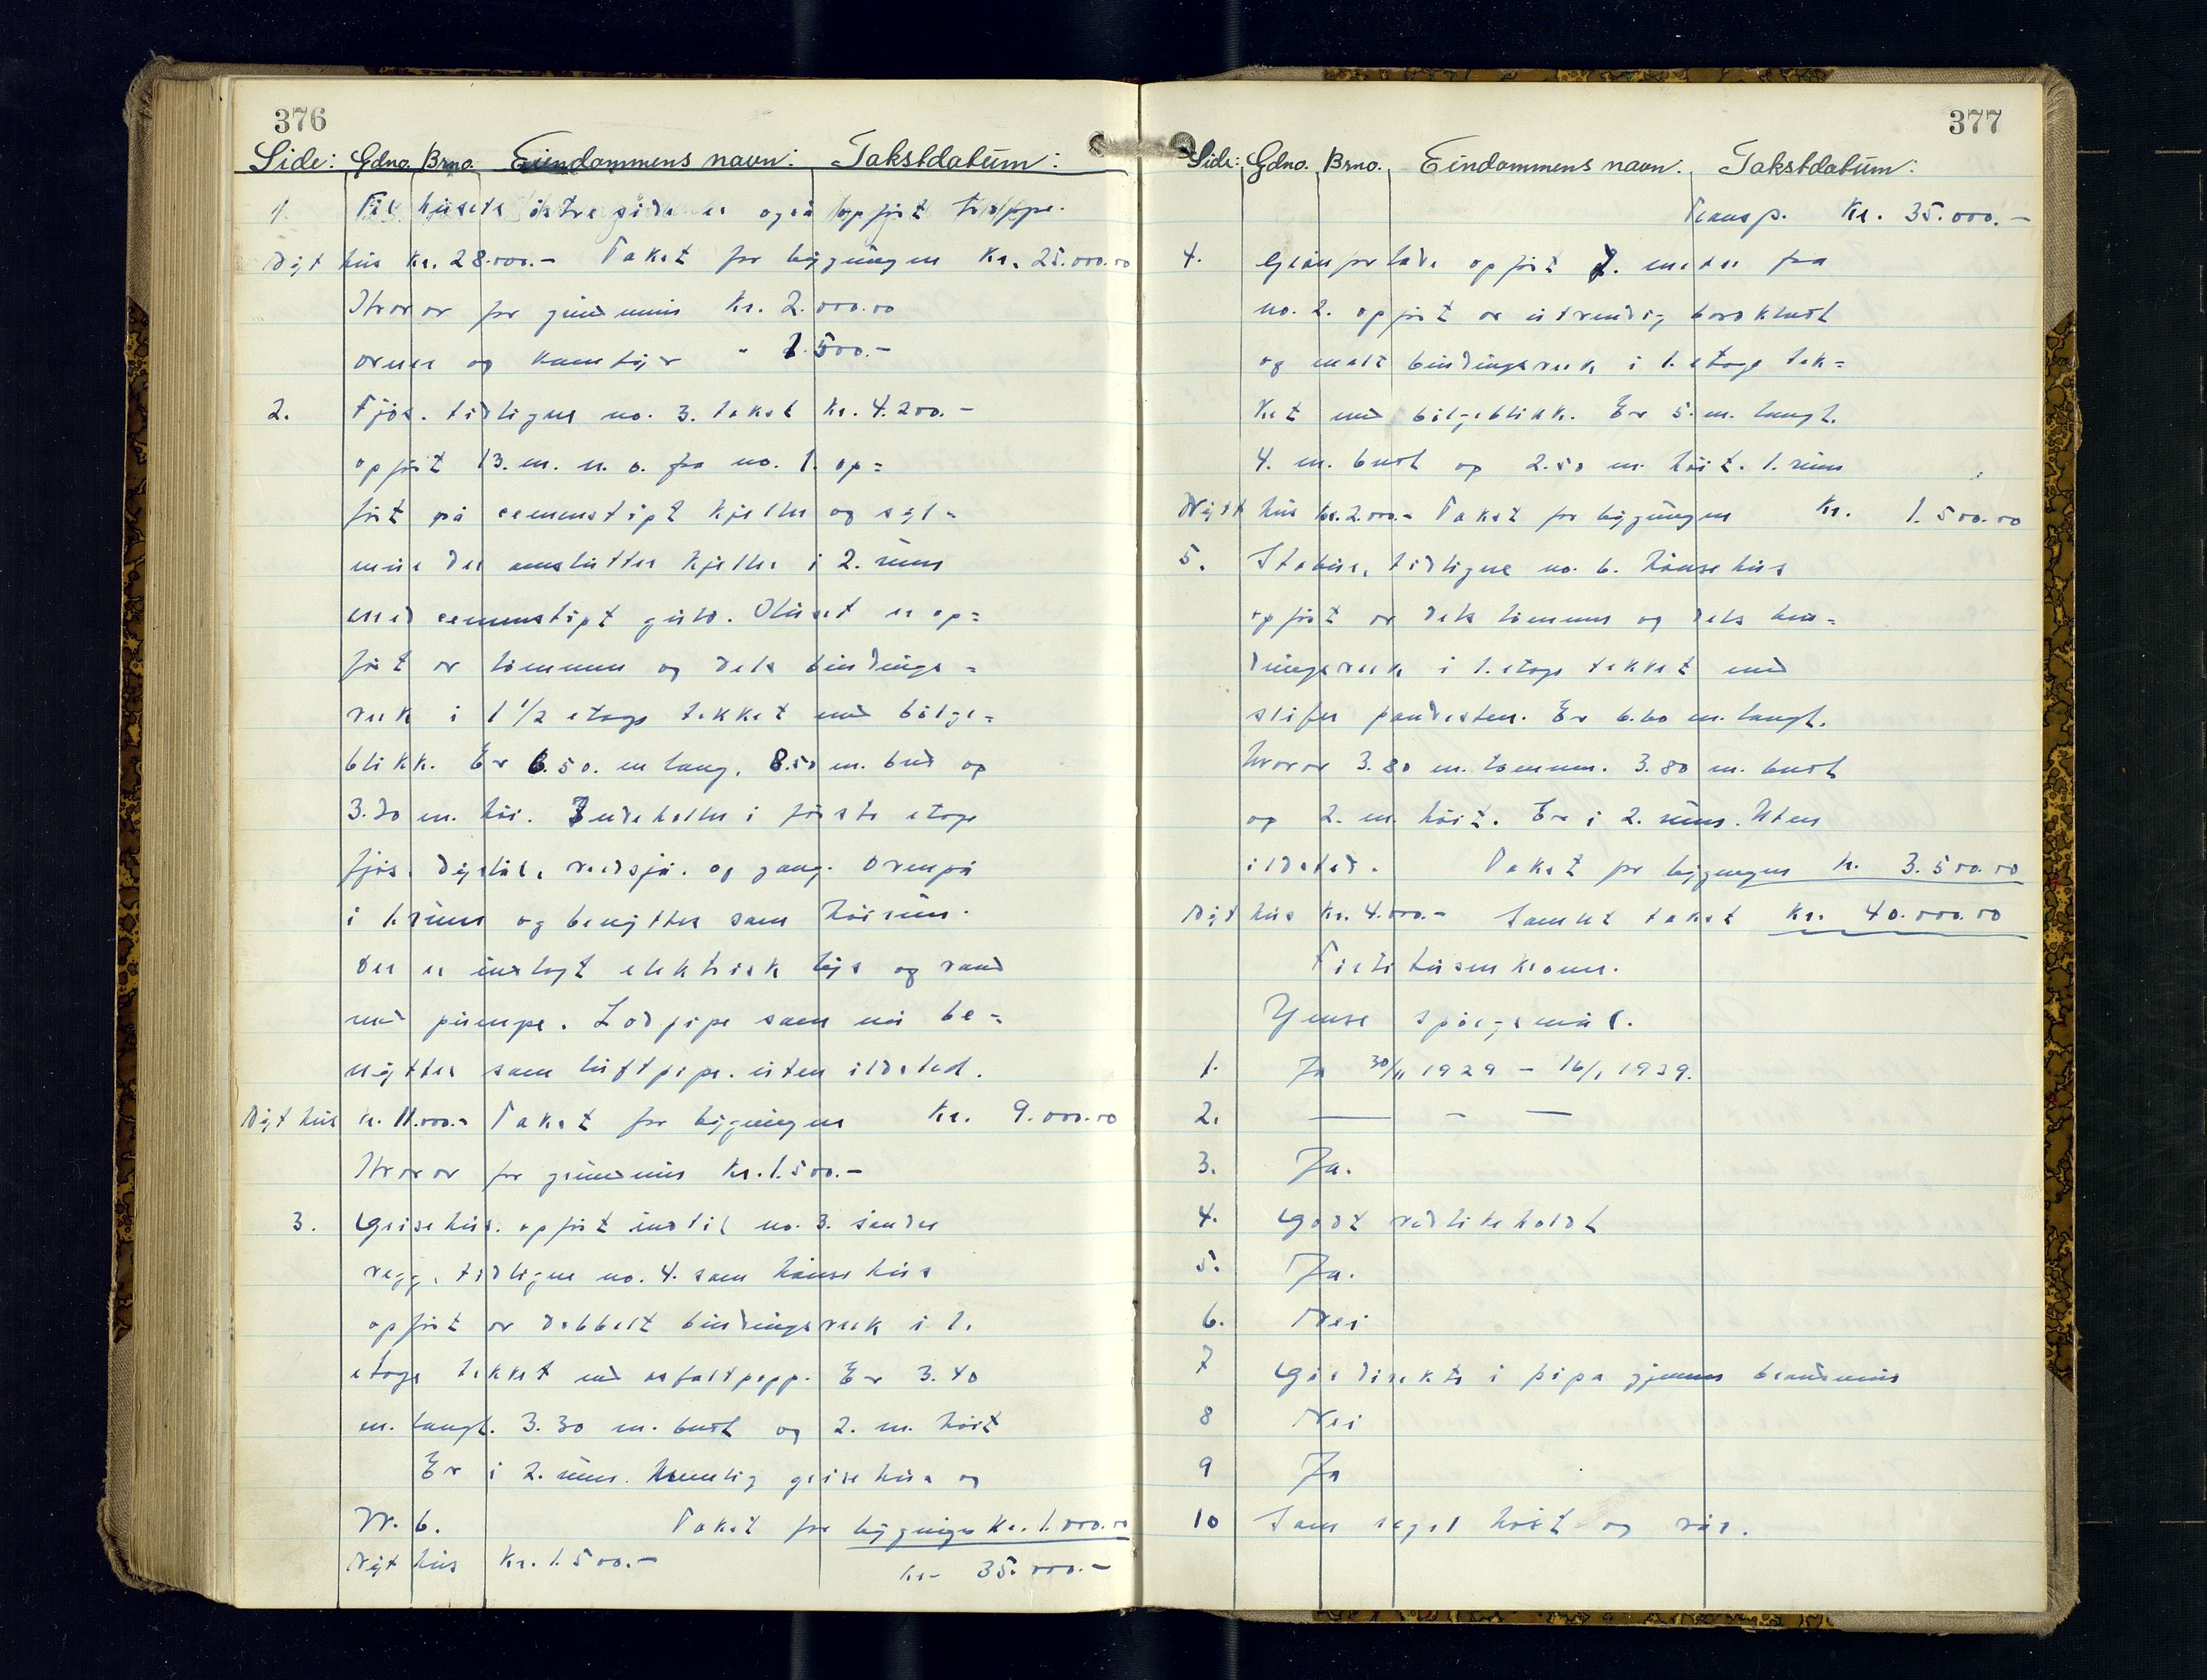 376
Side: Gdno. Brno. Eiendommens navn: Takstdatum:
1. Til husets østre side er også opført trappe.
Nyt hus Kr. 28.000.- Takst for bygningen Kr. 25.000.00
Hvorav for grundmur Kr. 2.000.00
ovner og komfyr " 1.500.-
2. Fjøs. tidligere no. 3. takst Kr. 4.200.-
opført 13. m. n. o. fra no. 1. op=
ført på cementstøpt kjeller og syl=
mur der omslutter kjeller i 2. rum
med cementstøpt gulv. Huset er op=
ført av tømmer og dels bindings=
verk i 1 1/2 etage tekket med bølge=
blikk. Er 6.50. m lang, 8.50 m. bred og
3.30 m. høi. Indeholder i første etage
fjøs. dystal, vedsjå. og gang. Ovenpå
i 1. rum og benyttes som høirum.
Der er indlagt elektrisk lys og vand
med pumpe. Lodpipe som nu be=
nyttes som luftpipe. uten ildsted.
Nyt hus Kr. 11.000.- Takst for bygningen Kr. 9.000.00
Hvorav for grundmur Kr. 1.500.-
3. Grisehus. opført indtil no. 3. søndre
vegg, tidligere no. 4. som hønsehus
opført av dobbelt bindingsverk i 1.
etage tekket med asfaltpapp. Er 3.40
m. langt. 3.30 m. bredt og 2. m. høit
Er i 2. rum. Nemlig grisehus og
W. b. Takst for bygningen Kr. 1.000.00
Nyt hus Kr. 1.500.- kr 35.000.-
377
Side: Gdno. Brno. Eindommens navn: Takstdatum:
Transp. Kr. 35.000.-
4. opført 7. meter fra
no. 2. opført av utvendig bordkledt
og malt bindingsverk i 1. etage tek=
ket med bølgeblikk. Er 5. m. langt.
4. m. bredt og 2.50 m. høit. 1. rum
Nytt hus kr. 2.000.- Takst for bygningen Kr. 1.500.00
5. Stabur, tidligere no. 6. hønsehus
opført av dels tømmer og dels bin=
dingsverk i 1. etage tekket med
skifer pandesten. Er 6.60 m. langt.
hvorav 3.80 m. tømmer. 3.80 m. bredt
og 2. m. høit. Er i 2. rum. Uten
ildsted. Takst for bygningen kr. 3.500.00
Nyt hus Kr. 4.000.- Samlet takst Kr. 40.000.00
Firtitusen kroner.
Ymse spørgsmål.
1. Ja 30/11 1929 - 16/1 1939.
2. — - —
3. Ja.
4. Godt vedlikeholdt
5. Ja.
6. Nei
7 Går direkte i pipa gjennem brandmur
8 Nei
9 Ja
10 Som regel høst og vår.